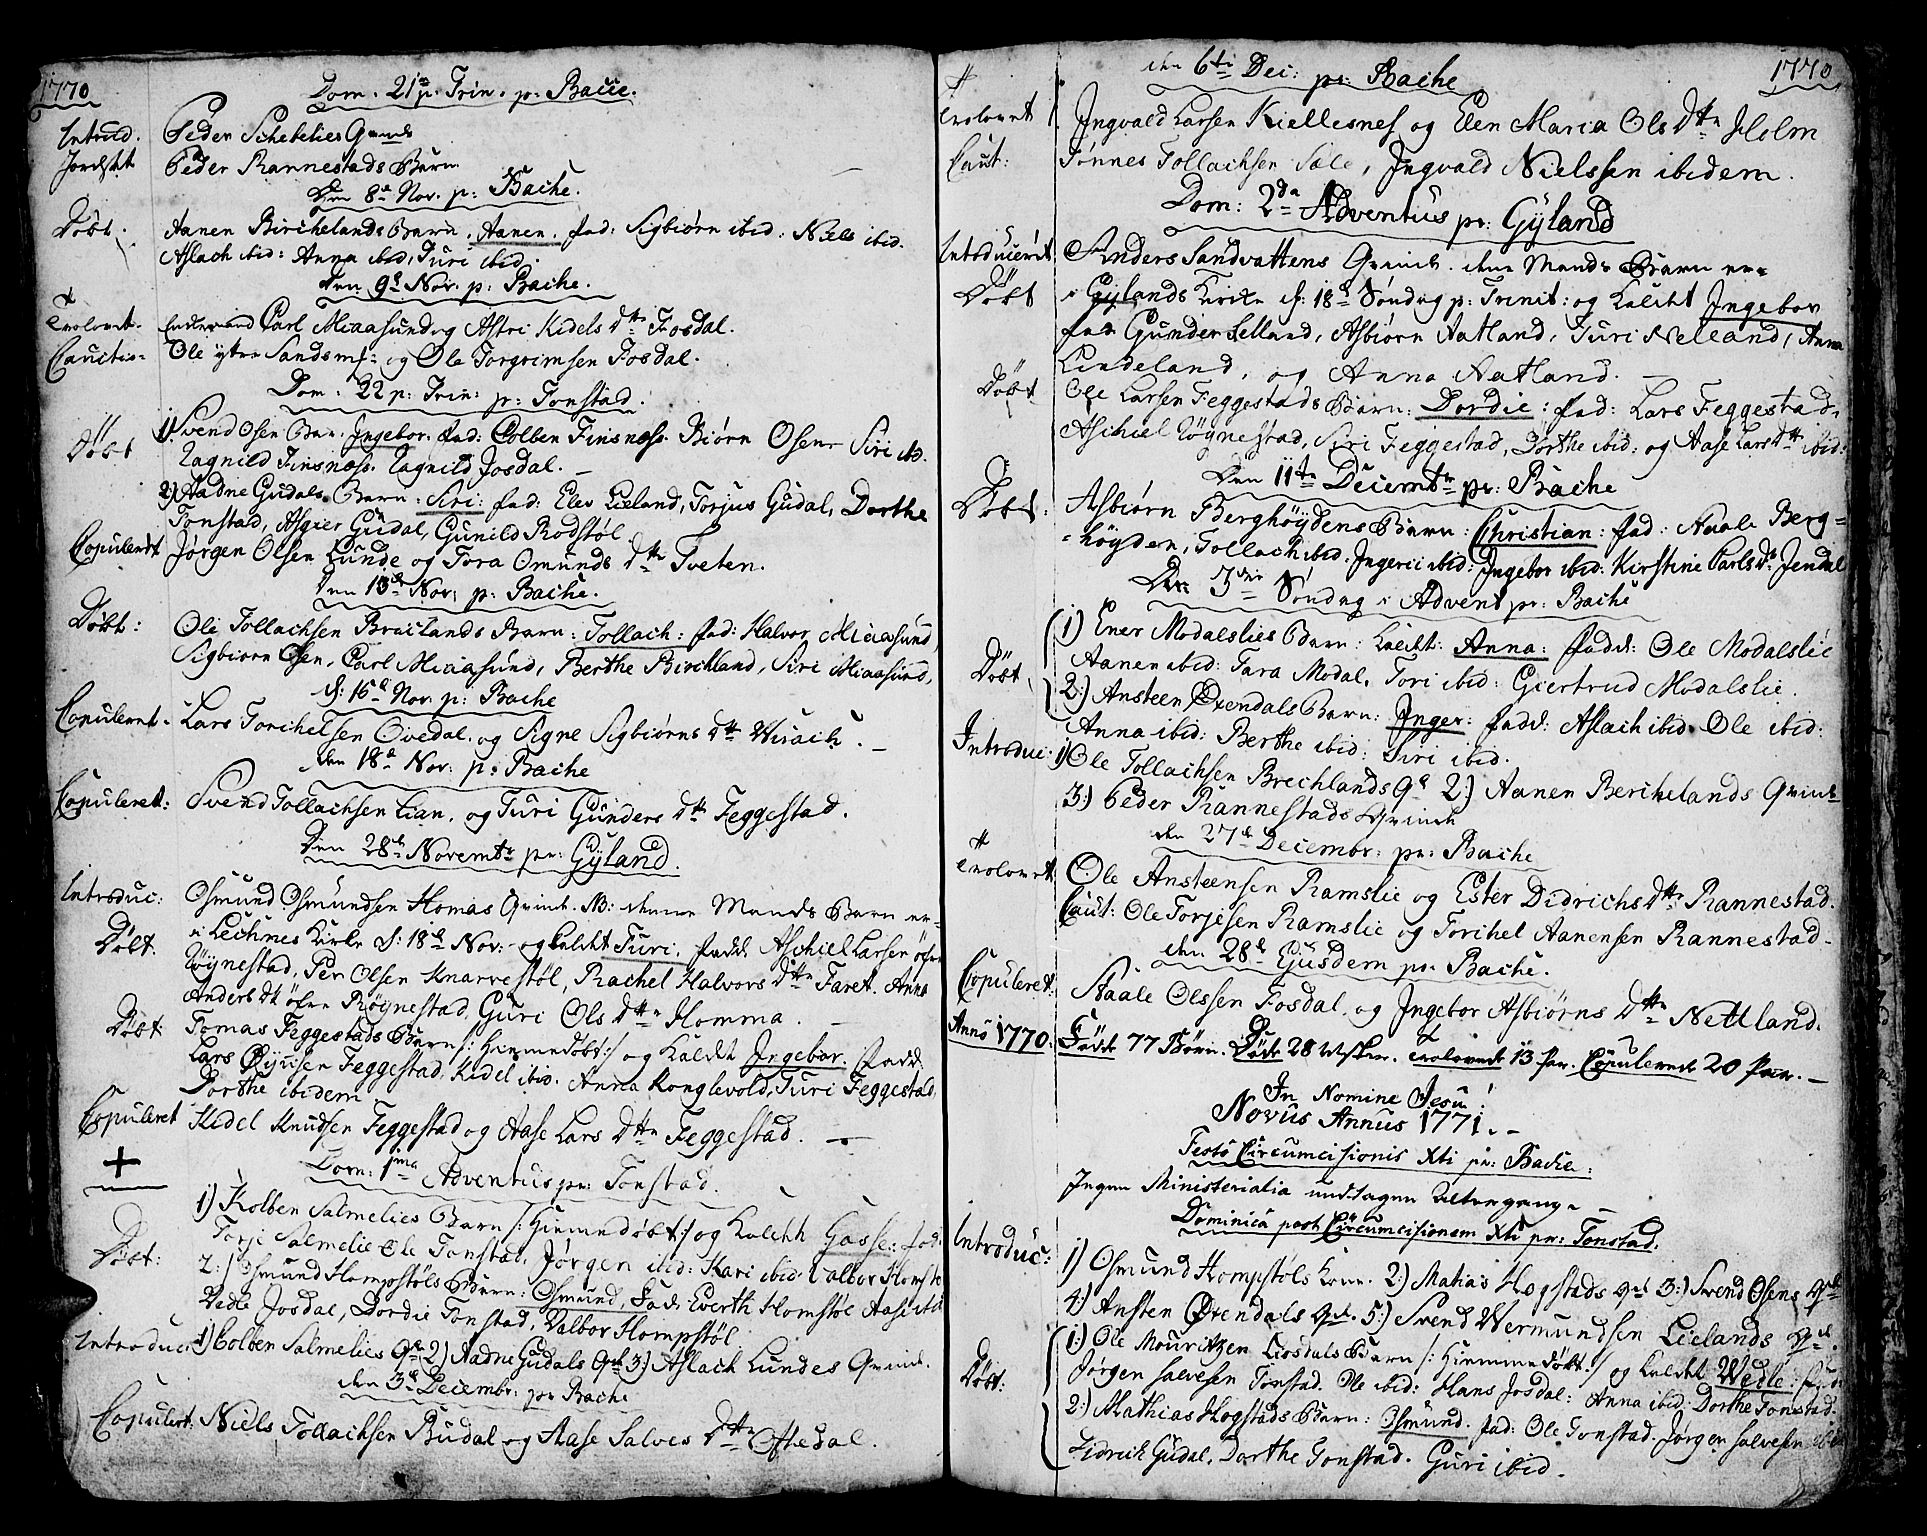 1770
Dom. 21 p. Trin. p: Bache.
Introd. Peder Schebelies Qvinde
Jordfæst Peder Rannestads Barn
Den 8de Nov. p: Bache.
Døbt. Aanen Birchelands Barn. Aanen. fad: Sigbiørn ibid: Niels ibid.
Aslach ibid: Anna ibid, Turi ibid.
Den 9de Nov. p: Bache.
Trolovet. Carl Miaasund og Astri Kidels Dttr Josdal.
Cautio= Ole ytre Sandsm: og Ole Torgrimsen Josdal.
Dom. 22 p: Trin: p: Tonstad.
Døbt 1) Svend Osen Bar. Ingebor. fad: Colben Finsnæss. Biørn Osen Siri ib.
Ragnild Finsnæss. Ragnild Josdal. –
2) Aadne Gudals Barn: Siri: fad: Elev Lieland, Torjus Gudal, Dorthe
Tonstad, Asgier Gudal, Gunild Rodstøl
Copuleret Jørgen Olsen Lunde og Tora Omunds Dttr Tveten.
Den 13de Nov: p: Bache.
Døbt: Ole Tollachsen Brætlands Barn: Tollach: fad: Halvor Miaasund,
Sigbiørn Osen, Carl Miaasund, Berthe Birchland, Siri Miaasund,
d: 16de Nov: p: Bache
Copuleret. Lars Torchelsen Ovedal. og Signe Sigbiørns Dttr Virach. –
den 18de Nov: p: Bache
Copuleret: Svend Tollachsen Lian, og Turi Gunders Dttr Feggestad.
Den 28de Novembr pr: Gyland.
Introduc: Osmund Osmundsen Homas Qvinde. NB: denne Mands Barn er
Døbt. i Lechnes Kirke d: 18de Nov: og kaldt Turi. fadd. Aschiel Larsen öfre
Röynestad, Per Olsen Knarrestøl, Rachel Halvors Dttr Faret. Anna
Anders Dt öfre Röynestad, Guri Ols Dttr Homma. –
Døbt: Tomas Feggestads Barn /: Hiemmedøbt :/ og kaldt Ingebor. Fadd.
Lars Feggestad, Kidel ibid. Anna Konglevold, Turi Feggestad,
Dorthe ibidem
Copuleret Kidel Knudsen Feggestad og Aase Lars Dttr Feggestad. –
+
Dom: 1ma Adventus pr: Tonstad.
Døbt: 1) Kolben Salmelies Barn /: Hiemmedøbt :/ og kaldt Gasse: fad:
Torje Salmelie Ole Tonstad, Jørgen ibid: Kari ibid: Valbor Homstø
2:) Osmund Hompstøls Barn: Osmund, Fad: Everth Homstøl Aase ibid
Vedle Josdal, Dordie Tonstad, Valbor Hompstøl
Introduc: 1) Colben Salmelies Qv. 2) Aadne Gudals Qvd 3) Aslach Lundes Qvind.
den 3de Decembr: pr Bache
Copulert: Niels Tollachsen Budal og Aase Salves Dttr Oftedal.
1770
den 6te Dec: pr: Bache
Trolovet Ingvald Larsen Kiellesnes og Elen Maria Ols Dttr Holm
Caut: Tønnes Tollachsen Sæle, Ingvald Nielssen ibidem.
Dom: 2da Adventus pr: Gyland
Introduceret Anders Sandvattens Qvinde. denne Mands Barn er
Døbt i Gylands Kirke d: 18de Søndag p: Trinit: og kaldt Ingebor
fad: Gunder Selland, Asbiørn Aatland, Turi Nelland, Anna
Lindeland, og Anna Aatland. –
Døbt Ole Larsen Feggestads Barn: Dordie: fad: Lars Feggestad,
Aschiel Röynestad, Siri Feggestad, Dorthe ibid: og Aase Lars Dttr ibid:
Den 11te Decembr pr: Bache
Døbt. Asbiørn Berghöydens Barn: Christian: fad: Aale Berg=
=höyden, Tollach ibid. Ingeri ibid: Ingebor ibid: Kirstine Carls Dt Jendal
Den 3die Søndag i Advent pr: Bache
Døbt 1) Ener Modalslies Barn: kaldt: Anna: fadd: Ole Modalslie
Aanen ibid: Tara Modal. Tori ibid: Giertrud Modalslie.
2:) Ansteen Øvendals Barn: Inger: fadd: Aslach ibid. Ole ibid:
Anna ibid: Berthe ibid: Siri ibid.
Introduc: 1) Ole Tollachsen Brechlands Qv 2:) Aanen Berchelands Qvinde
3:) Peder Rannestads Qvinde
den 27de Decembr: pr: Bache
Trolovet Ole Ansteensen Ramslie og Ester Didrichs Dttr Rannestad.
Caut: Ole Torjesen Ramslie og Torchel Aanensen Rannestad.
den 28de Ejusdem pr: Bache.
Copuleret: Aale Olssen Josdal, og Ingebor Asbiørns Dttr Netland.
Anno 1770. Fødde 77 Børn. Døde 28 Trolovede 13 Par. Copulerede 20 Par. –
In Nomine Jesu!
Novus Annus 1771. –
Festo Circumcisionis Xti pr: Bache:
Ingen Ministerialia undtagen Altergang –
Dominica post Circumcisionem Xti pr: Tonstad.
Introduc: 1) Osmund Hompstøls Kone. 2:) Matias Hogstads qvd 3:) Svend Osens qvd
4:) Ansten Øvendals qvd. 5:) Svend Vermundsen Lielands qvd.
Døbt: 1:) Ole Mouritzen Liosdals Barn /: Hiemmedøbt :/ og kaldt Vedle: fad:
Jørgen Salvesen Tonstad. Ole ibid: Hans Josdal: Anna ibid: Dorthe Tonstad.
2:) Mathias Hogstads Barn: Osmund. fad: Ole Tonstad. Jørgen Salvesen ibid
Didrich Gudal, Dorthe Tonstad. Guri ibid.